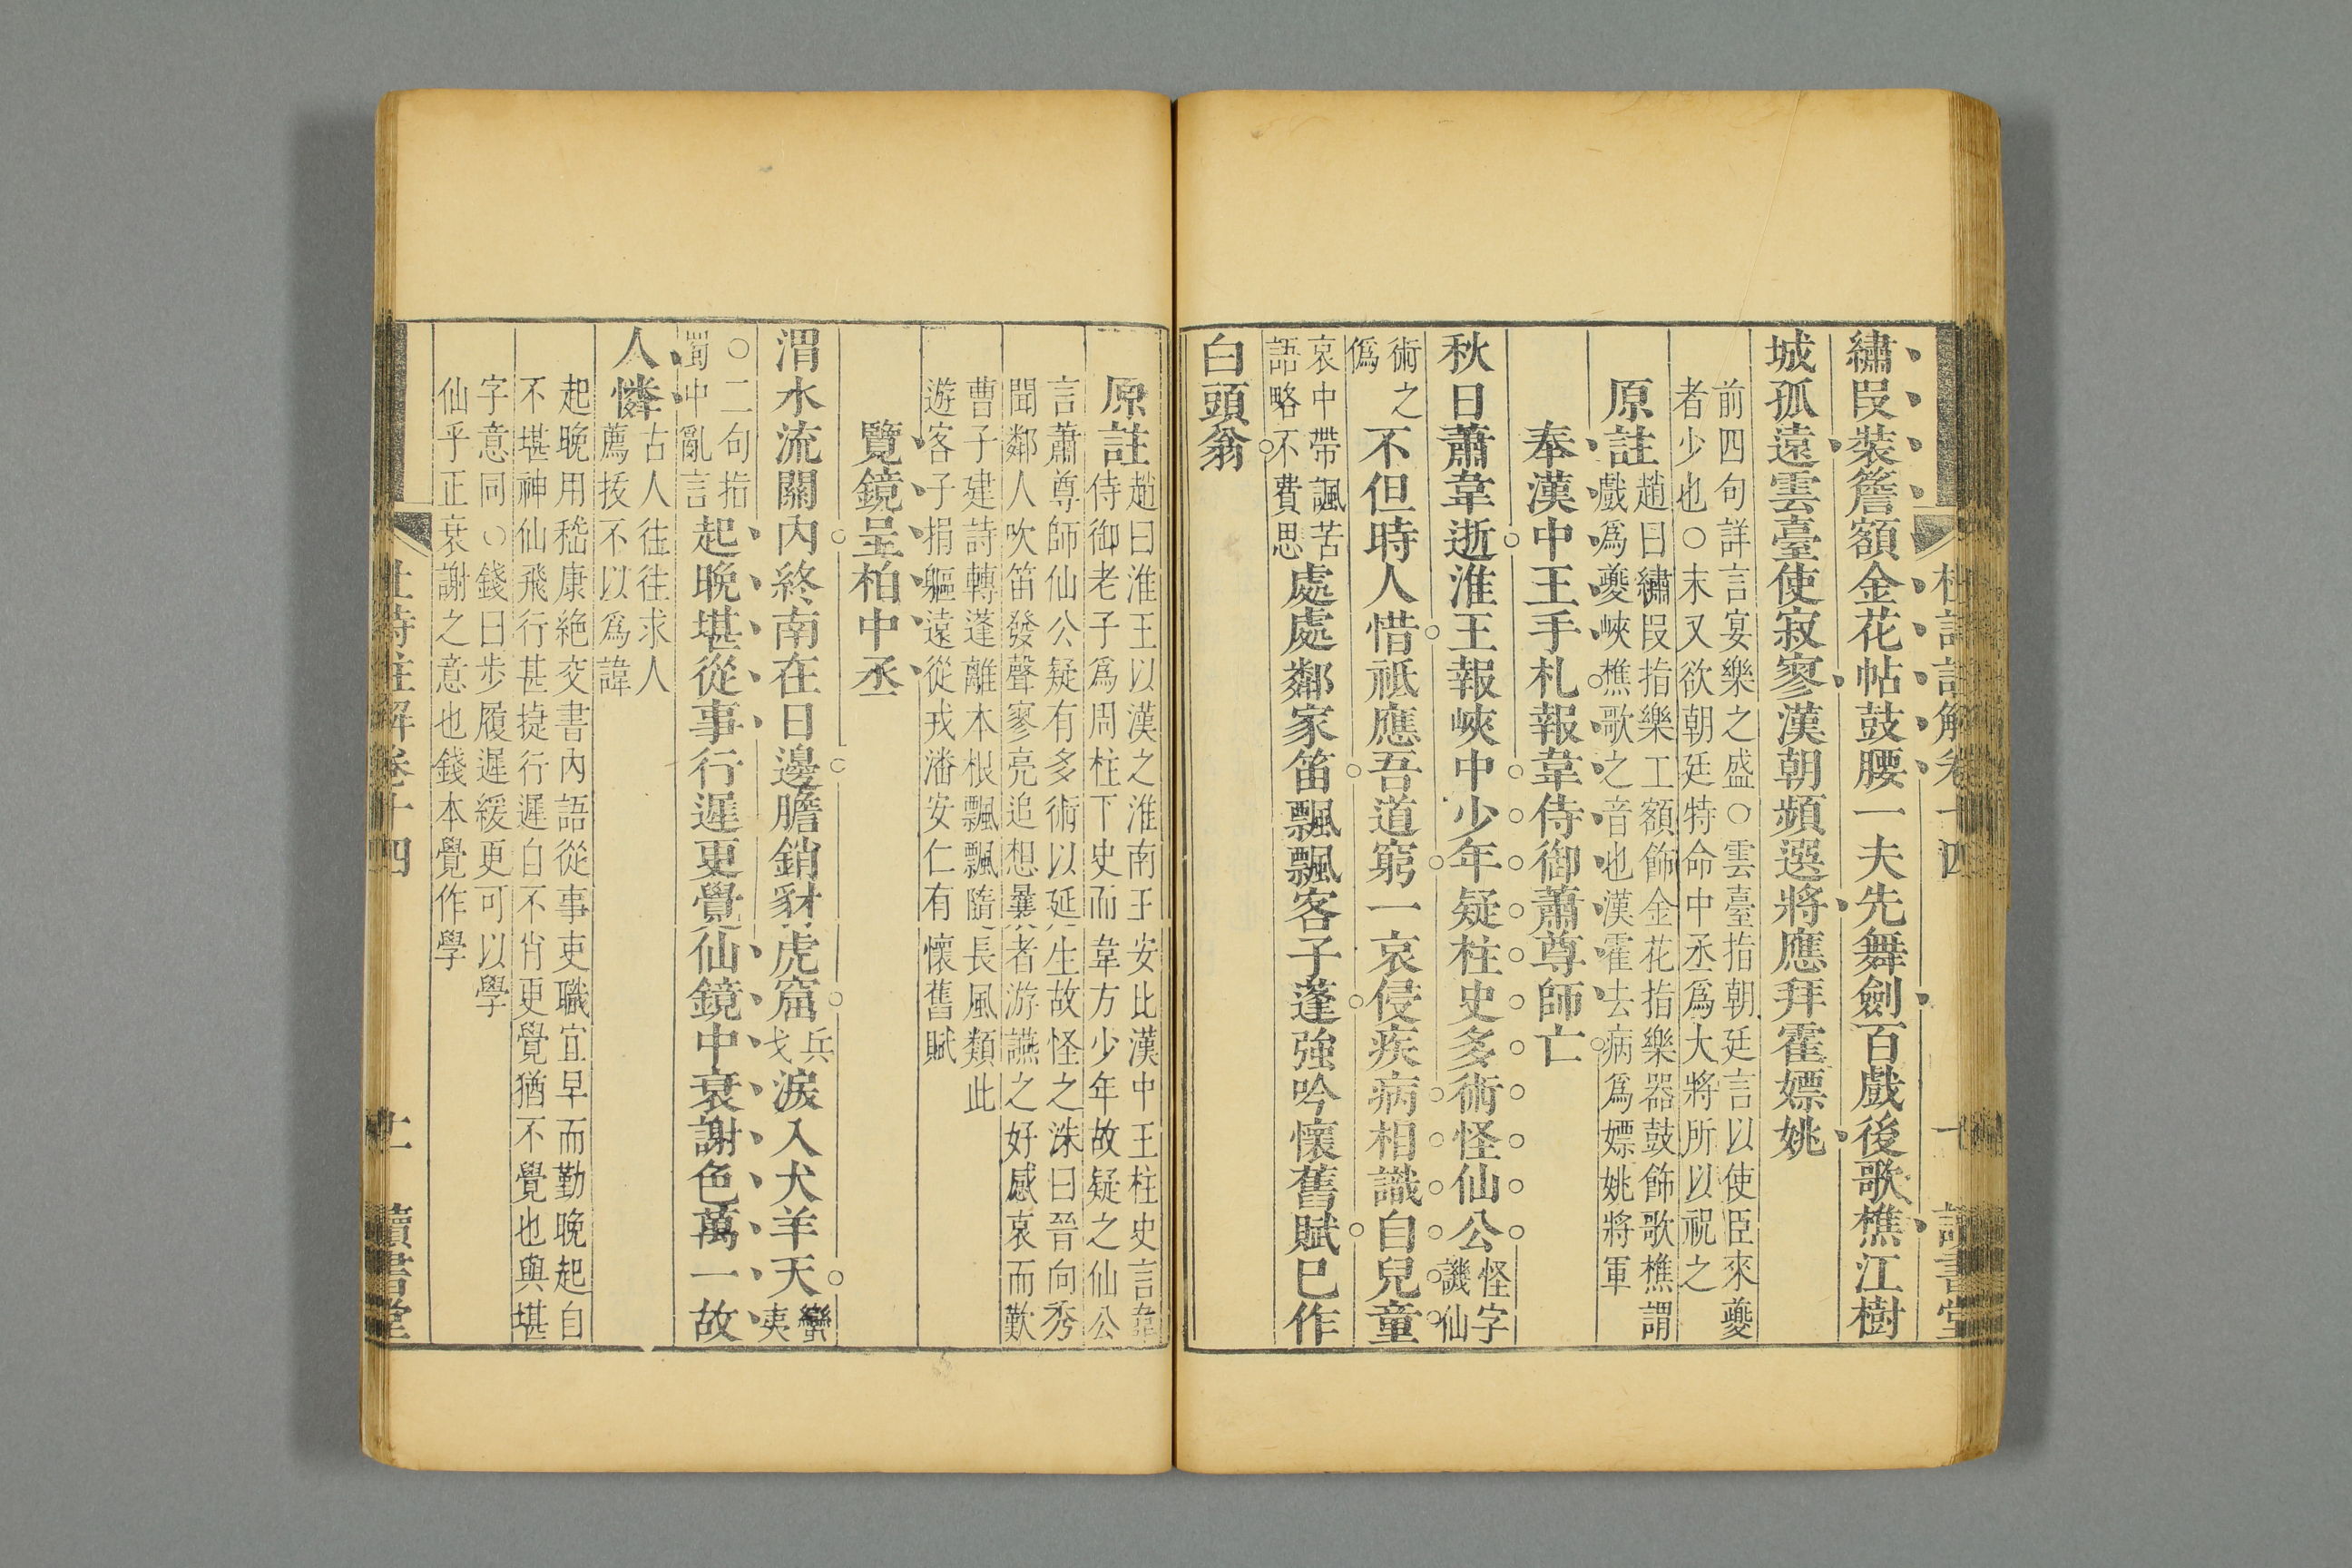 杜詩註解卷十四
十
讀書堂
繡段裝簷額金花帖鼓腰一夫先舞劍百戲後歌樵江樹
城孤遠雲臺使寂寥漢朝頻選將應拜霍嫖姚
前四句詳言宴樂之盛○雲臺指朝廷言以使臣來夔
者少也○末又欲朝廷特命中丞爲大將所以祝之
原註
趙曰繡段指樂工額飾金花指樂器鼓飾歌樵謂
戲爲夔峽樵歌之音也漢霍去病爲嫖姚將軍
奉漢中王手札報韋侍御蕭尊師亡
秋日蕭韋逝淮王報峽中少年疑柱史多術怪仙公
怪字
譏仙
術之
僞
不但時人惜祗應吾道窮一哀侵疾病相識自兒童
哀中帶諷苦
語略不費思
處處鄰家笛飄飄客子蓬強吟懷舊賦已作
白頭翁
原註
趙曰淮王以漢之淮南王安比漢中王柱史言韋
侍御老子爲周柱下史而韋方少年故疑之仙公
言蕭尊師仙公疑有多術以延生故怪之洙曰晉向秀
聞鄰人吹笛發聲寥亮追想曩者游讌之好感哀而歎
曹子建詩轉蓬離本根飄飄隨長風類此
遊客子捐軀遠從戎潘安仁有懷舊賦
覽鏡呈柏中丞
渭水流關內終南在日邊膽銷豺虎窟
兵
戈
淚入犬羊天
蠻
夷
○二句指
蜀中亂言
起晚堪從事行遲更覺仙鏡中衰謝色萬一故
人憐
古人往往求人
薦拔不以爲諱
起晚用嵇康絶交書內語從事吏職宜早而勤晚起自
不堪神仙飛行甚捷行遲自不肖更覺猶不覺也與堪
字意同○錢曰步履遲緩更可以學
仙乎正衰謝之意也錢本覺作學
杜詩註解卷十四
十一
讀書堂